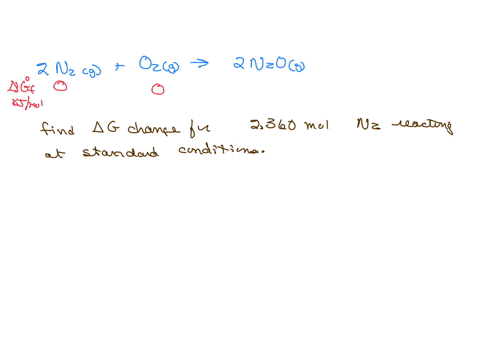 2 N₂ (g) + O₂(g) → 2 N₂O(g)
ΔG°f O O
KJ/mol
find ΔG change for 2.360 mol N₂ reacting
at standard conditions.